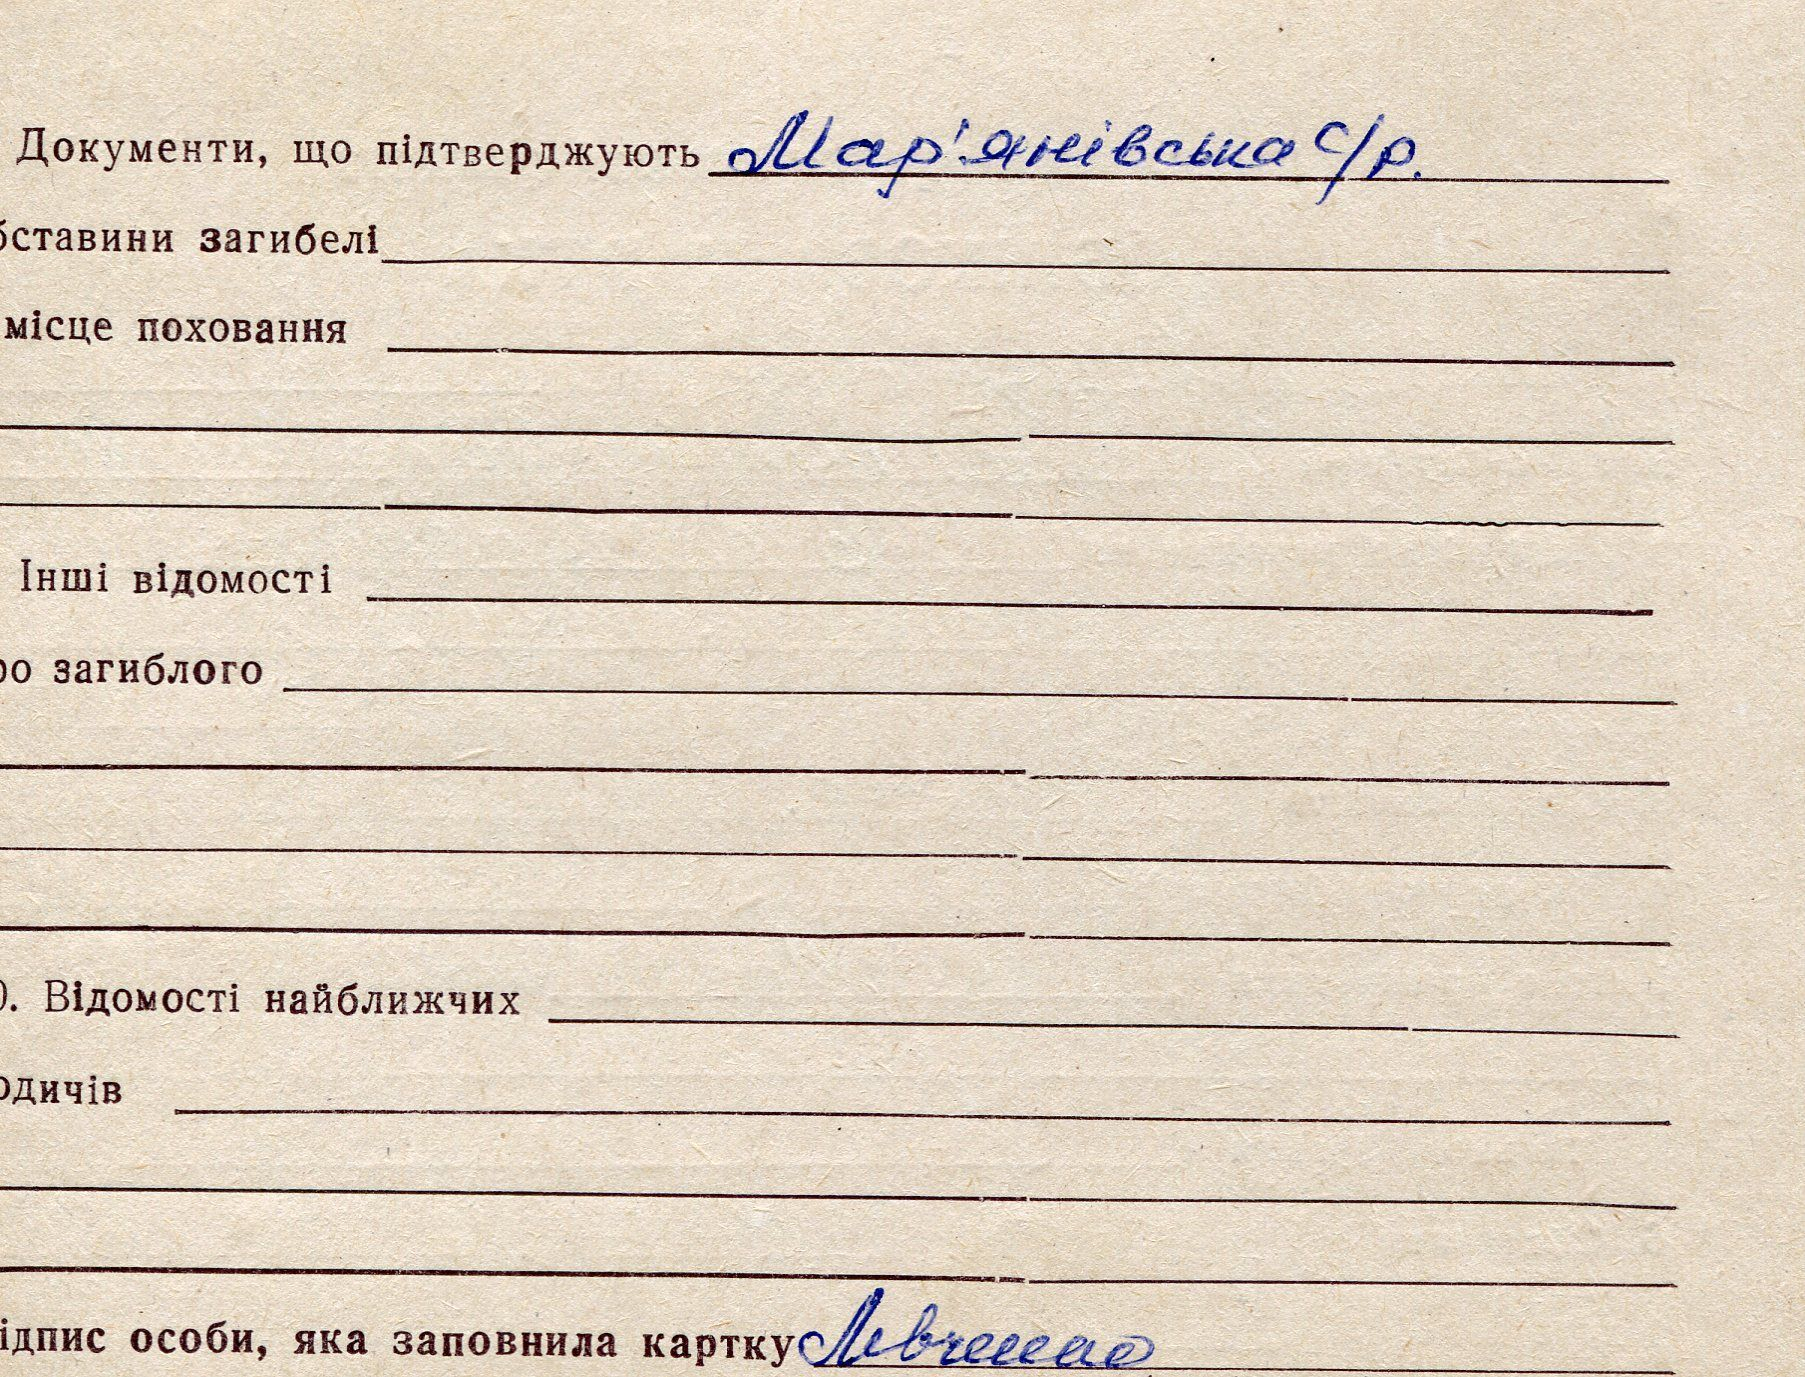 Документи, що підтверджують Мар'янівська с/р.
бставини загибелі
місце поховання
Інші відомості
ро загиблого
0. Відомості найближчих
одичів
ідпис особи, яка заповнила картку Левченко